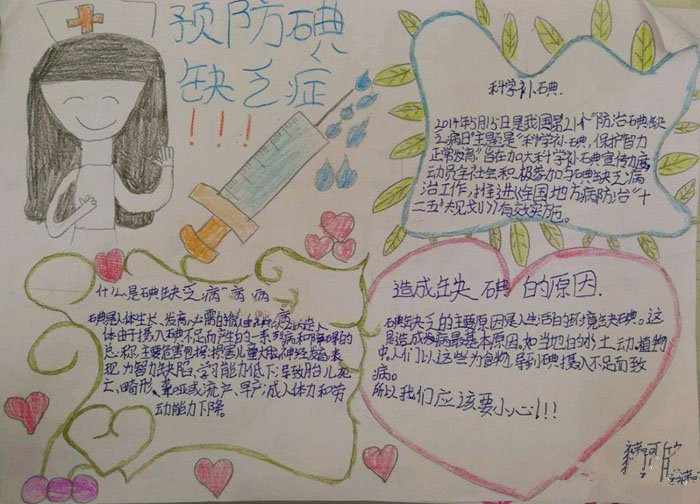 预防碘
缺乏症
!!!
科学补碘.
2014年5月15日是我国第21个"防治碘缺
乏病日"主题是"科学补碘,保护智力
正常发育"旨在加大科学补碘宣传力度,
动员全社会积极参加与碘缺乏病
治工作,推进全国地方病防治"十
二五"规划》有效实施。
什么是碘缺乏病
碘是人体生长、发育
体由于摄入碘不足而产生的一系列病和障碍的
总称,主要危害包括:损害儿童大脑神经发育,表
现为智力缺陷、学习能力低下;导致胎儿死
亡、畸形、聋哑或流产、早产;成人体力和劳
动能力下降。
造成缺碘的原因.
碘缺乏的主要原因是人生活的的环境缺碘。这
是造成疾病最基本原因。如当地的水土、动、植物
中,人们以这些为食物,导致碘摄入不足而致
病。
所以我们应该要小心!!!